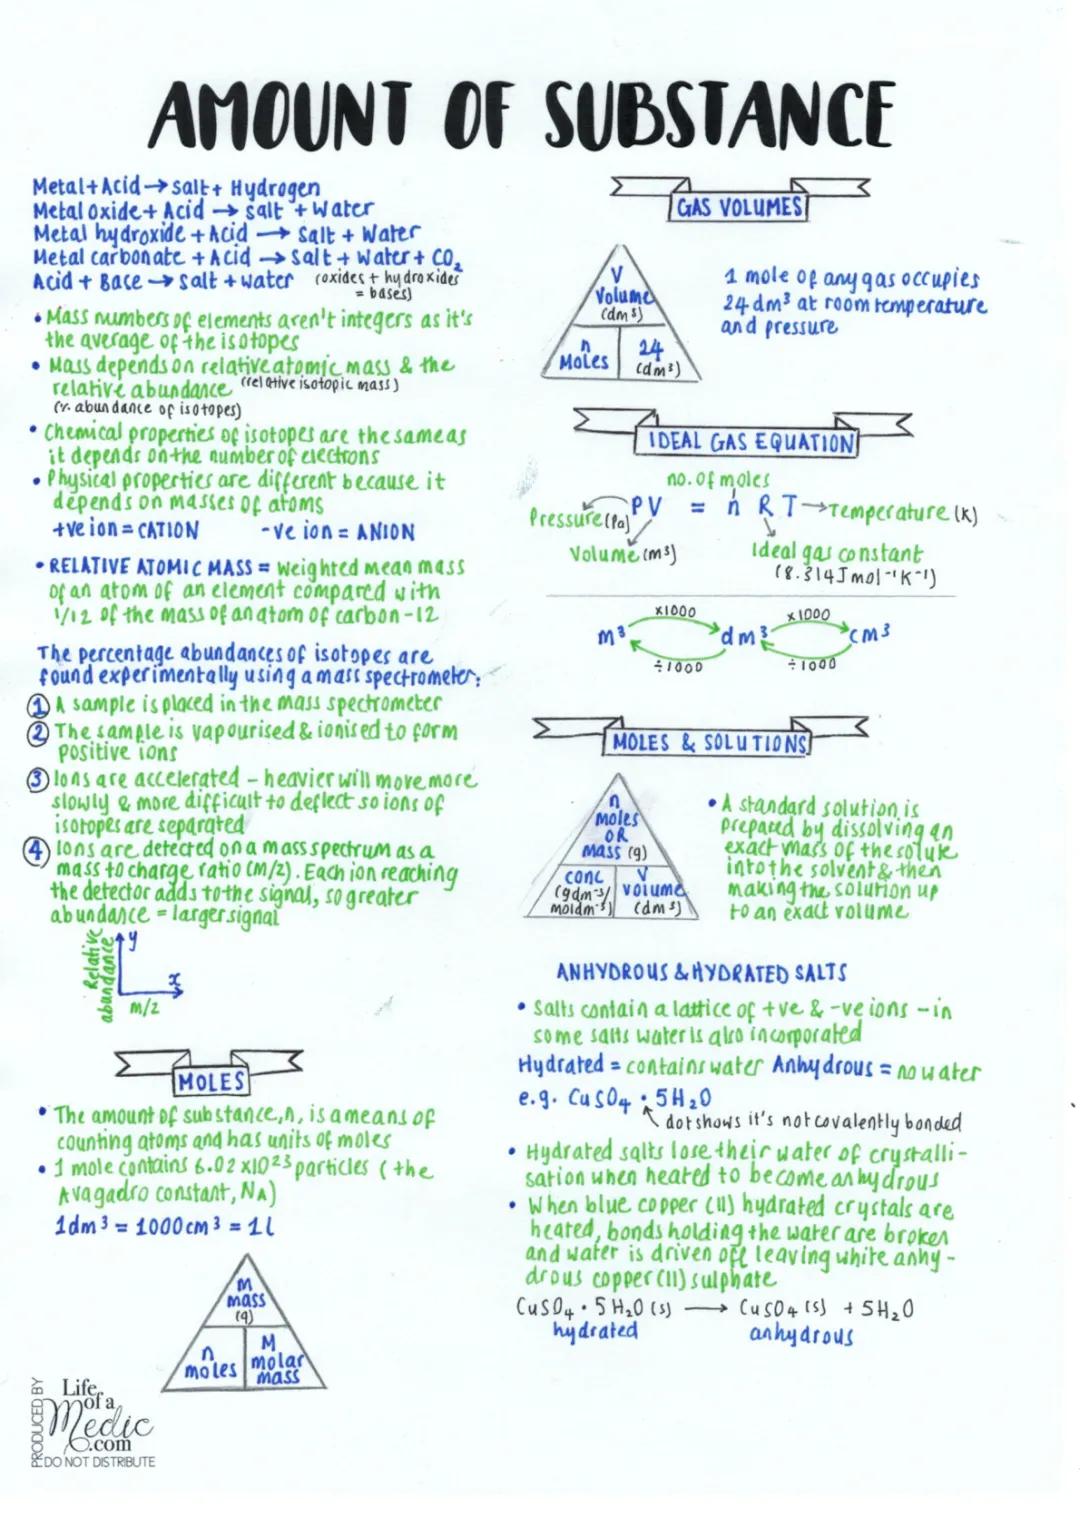 AMOUNT OF SUBSTANCE
Metal+Acid→salt+ Hydrogen
Metal oxide+ Acid → salt + Water
Metal hydroxide + Acid → Salt + Water
Metal carbonate + Acid → Salt + Water + CO₂
Acid + Bace → Salt + water (oxides + hydroxides
= bases)
• Mass numbers of elements aren't integers as it's
the average of the isotopes
• Mass depends on relative atomic mass & the
relative abundance (relative isotopic mass)
(% abundance of isotopes)
• Chemical properties of isotopes are the same as
it depends on the number of electrons
• Physical properties are different because it
depends on masses of atoms
+ve ion = CATION -ve ion = ANION
• RELATIVE ATOMIC MASS = Weighted mean mass
of an atom of an element compared with
1/12 of the mass of an atom of carbon-12
The percentage abundances of isotopes are
found experimentally using a mass spectrometer:
① A sample is placed in the mass spectrometer
② The sample is vapourised & ionised to form
positive ions
③ Ions are accelerated - heavier will move more
slowly & more difficult to deflect so ions of
isotopes are separated
④ Ions are detected on a mass spectrum as a
mass to charge ratio (M/2). Each ion reaching
the detector adds to the signal, so greater
abundance = larger signal
Relative
abundance
y
x
m/z
MOLES
• The amount of substance, n, is a means of
counting atoms and has units of moles
• 1 mole contains 6.02 x10²³ particles (the
Avagadro constant, NA)
1dm³ = 1000cm³ = 1l
M
mass
(g)
n
moles
M
molar
mass
PRODUCED BY
Life
of a
Medic
.com
DO NOT DISTRIBUTE
GAS VOLUMES
V
Volume
(dm³)
n
Moles
24
(dm³)
1 mole of any gas occupies
24 dm³ at room temperature
and pressure
IDEAL GAS EQUATION
no. of moles
Pressure (Pa) PV = n R T → Temperature (K)
Volume (m³)
Ideal gas constant
(8.314J mol⁻¹K⁻¹)
x1000 x1000
m³ dm³ cm³
÷1000 ÷1000
MOLES & SOLUTIONS
n
moles
OR
Mass (g)
conc
(gdm⁻³/
moldm⁻³)
V
volume
(dm³)
• A standard solution is
prepared by dissolving an
exact mass of the solute
into the solvent & then
making the solution up
to an exact volume
ANHYDROUS & HYDRATED SALTS
• Salts contain a lattice of +ve & -ve ions - in
some salts water is also incorporated
Hydrated = contains water Anhydrous = no water
e.g. CuSO₄ • 5H₂O
dot shows it's not covalently bonded
• Hydrated salts lose their water of crystalli-
sation when heated to become anhydrous
• When blue copper (II) hydrated crystals are
heated, bonds holding the water are broken
and water is driven off leaving white anhy-
drous copper (II) sulphate
CuSO₄ • 5H₂O (s) → CuSO₄ (s) + 5H₂O
hydrated anhydrous